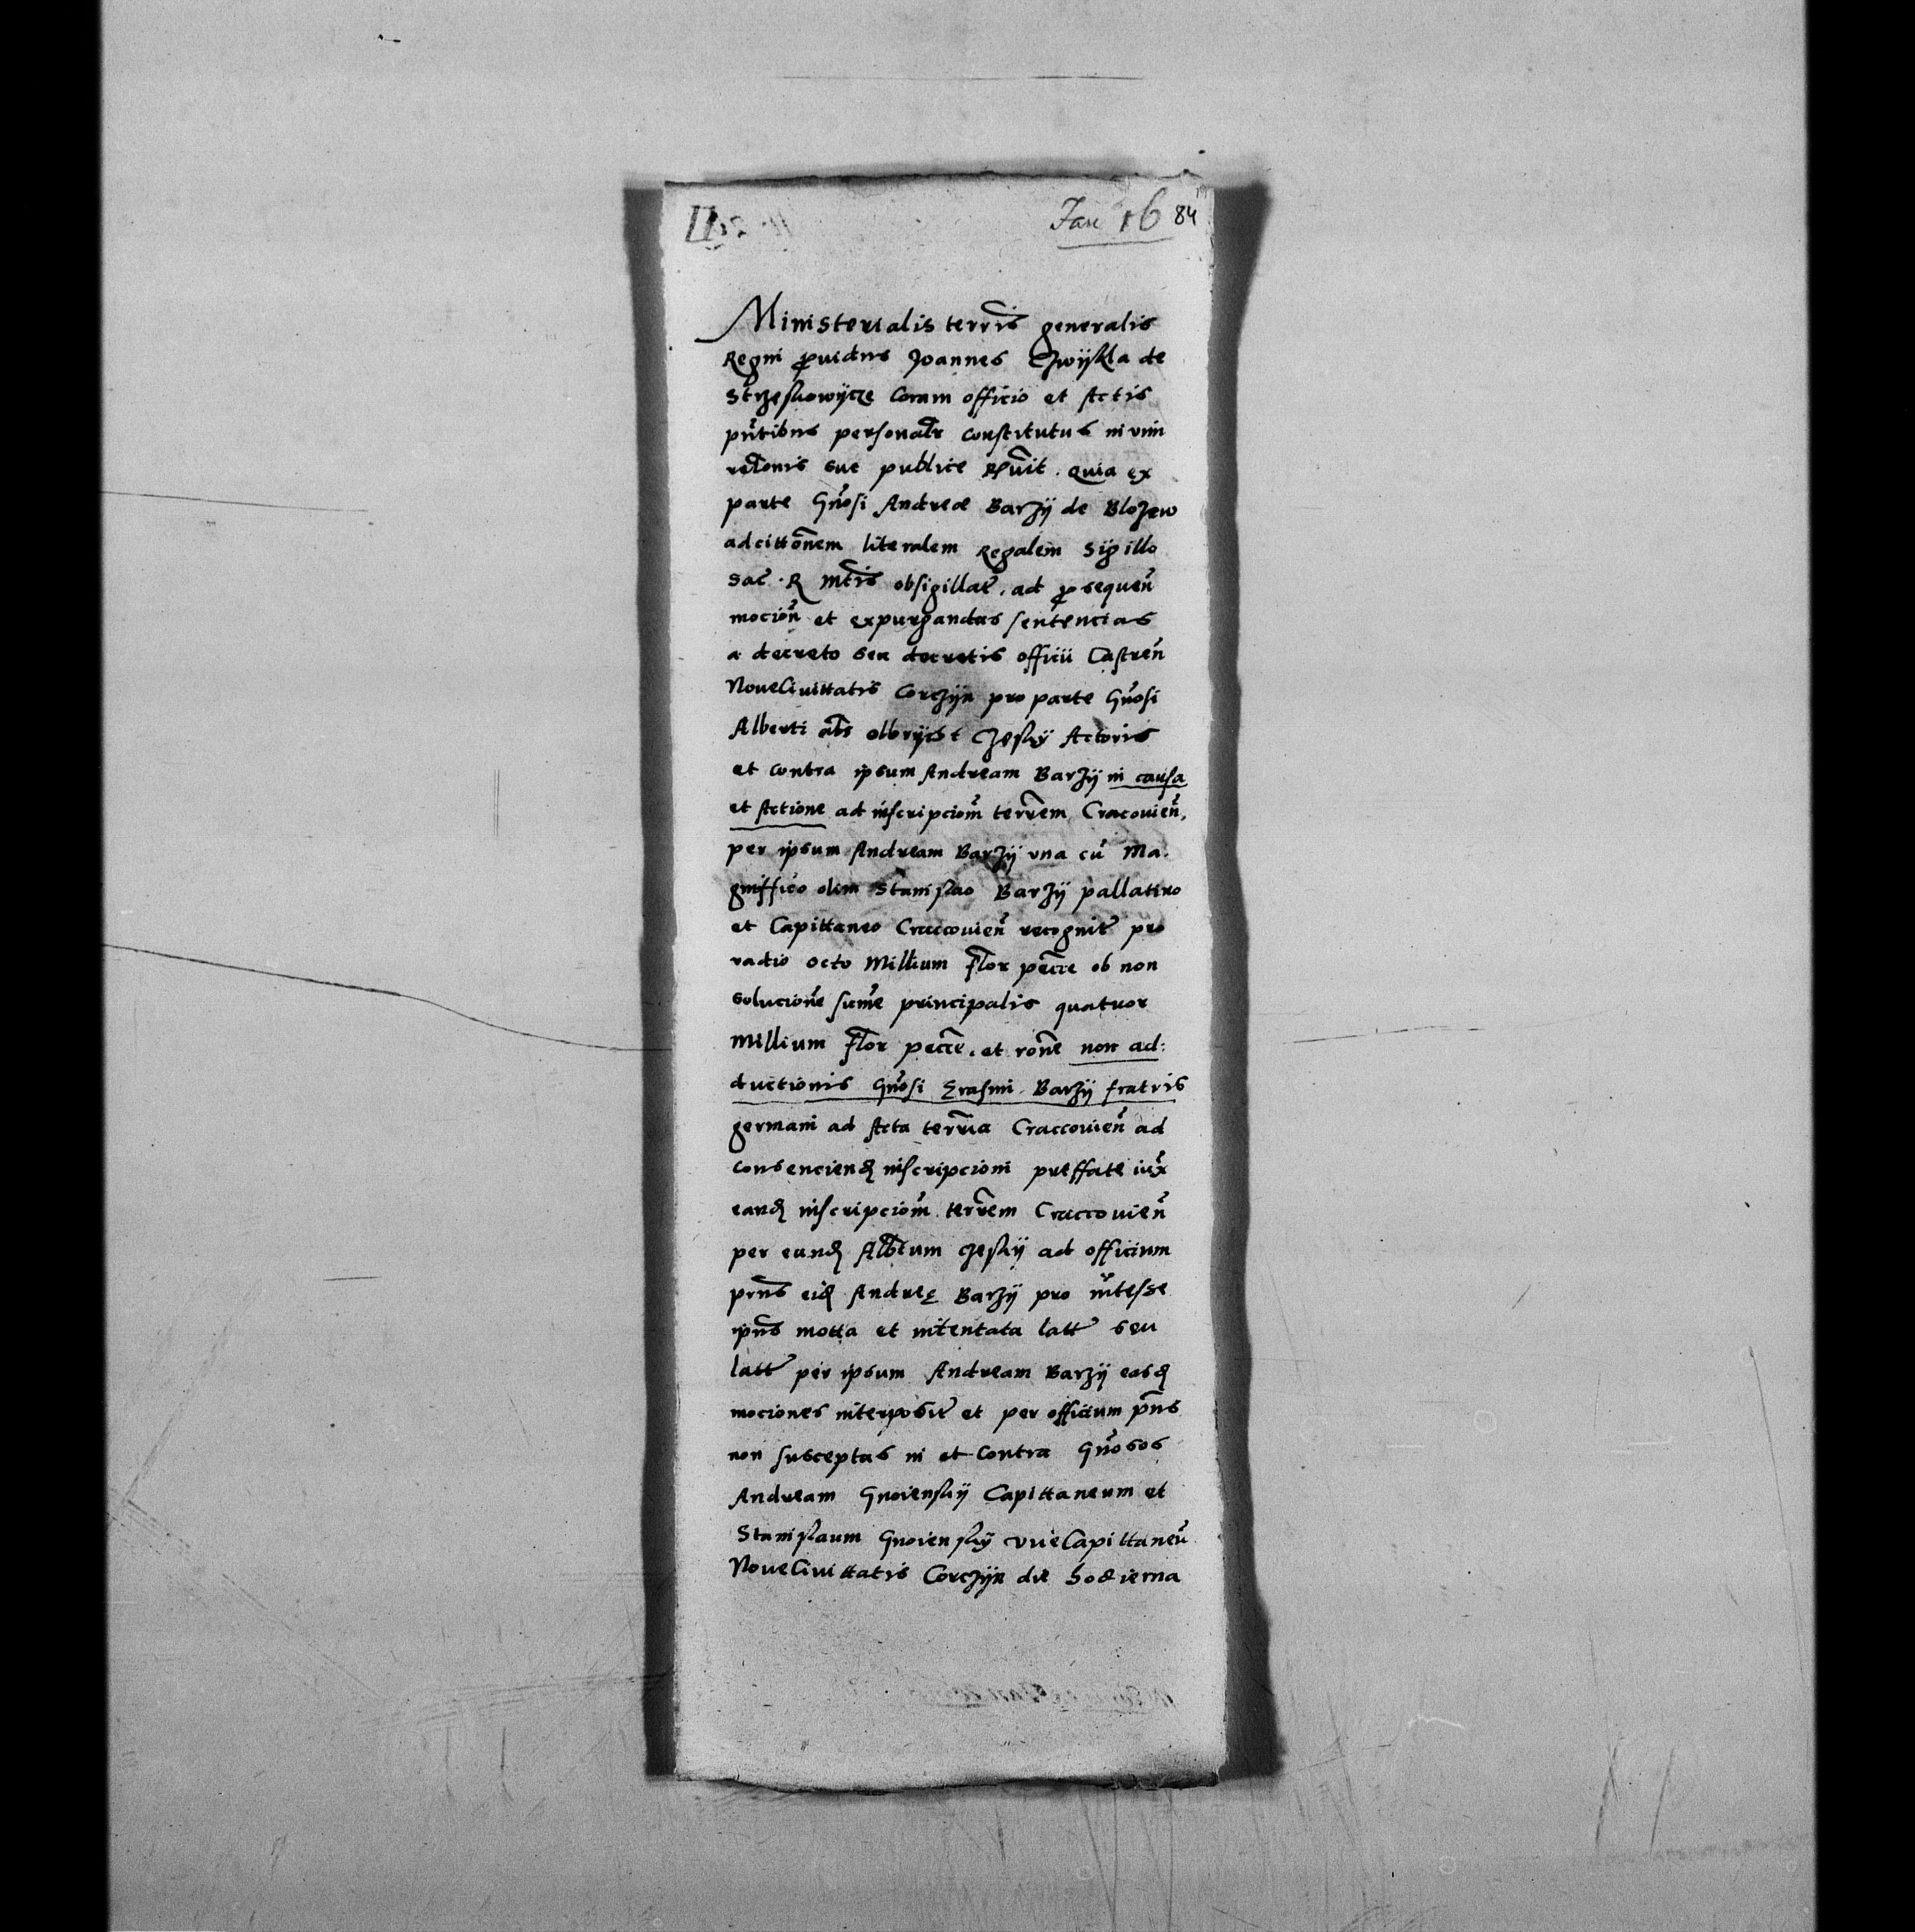 II
Jan 16 84
Ministerialis terris generalis
Regni puidus Joannes Czwijkla de
Strzeskowijcze Coram officio et Actis
pntibus personalr constitutus in vim
relonis sue publice Rnuit. Quia ex
parte Gnosi Andreæ Barzij de Blozew
ad cittonem literalem Regalem Sigillo
Sac. R Mtis obsigillat. ad prosequen
mocion et expurgandas sentencias
a decreto seu decretis officii Castren
Noue Ciuittatis Corczijn pro parte Gnosi
Alberti als olbrijcht Czeskij Actoris
et contra ipsum Andream Barzij in causa
et Actione ad inscripciom terrem Cracouien,
per ipsum Andream Barzij vna cu Ma-
gniffico olim Stanislao Barzij pallatino
et Capittaneo Craccouien recognit pro
vadio octo Millium flor pecce ob non
solucione sume principalis quatuor
Millium flor pecce. et rone non ad:
ductionis Gnosi Erasmi Barzij fratris
germani ad Acta terria Craccouien ad
consenciend inscripcioni preffate iux
eand inscripciom terrem Craccouien
per eund Albtum Czeskij ad officium
prns eid Andreę Barzij pro intesse
ipns motta et intentata latt seu
latt per ipsum Andream Barzij easd
mociones interposit et per officium pns
non susceptas in et contra Gnosos
Andream Gnoienskij Capittaneum et
Stanislaum Gnoienskij viceCapittaneu
Noue Ciuittatis Corczijn die hodierna